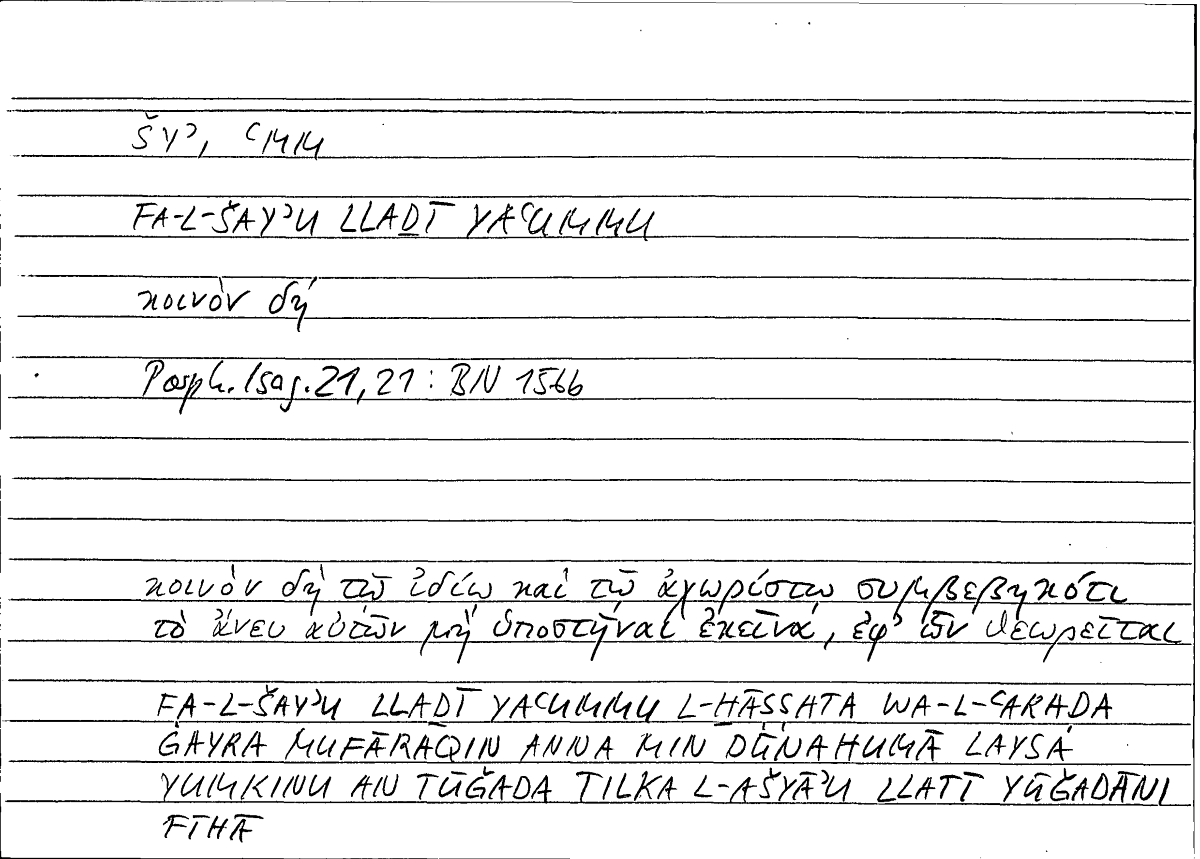 ŠYʾ, ʿMM
FA-L-ŠAYʾU LLAḎĪ YAʿUMMU
κοινὸν δή
Porph. Isag. 21,21: BN 156b
κοινὸν δὴ τῷ ἰδίῳ καὶ τῷ ἀχωρίστῳ συμβεβηκότι
τὸ ἄνευ αὐτῶν μὴ ὑποστῆναι ἐκεῖνα, ἐφ' ὧν θεωρεῖται
FA-L-ŠAYʾU LLAḎĪ YAʿUMMU L-ḪĀṢṢATA WA-L-ʿARAḌA
ĠAYRA MUFĀRAQIN ANNA MIN DŪNAHUMĀ LAYSA
YUMKINU AN TŪǦADA TILKA L-AŠYĀʾU LLATĪ YŪǦADĀNI
FĪHĀ